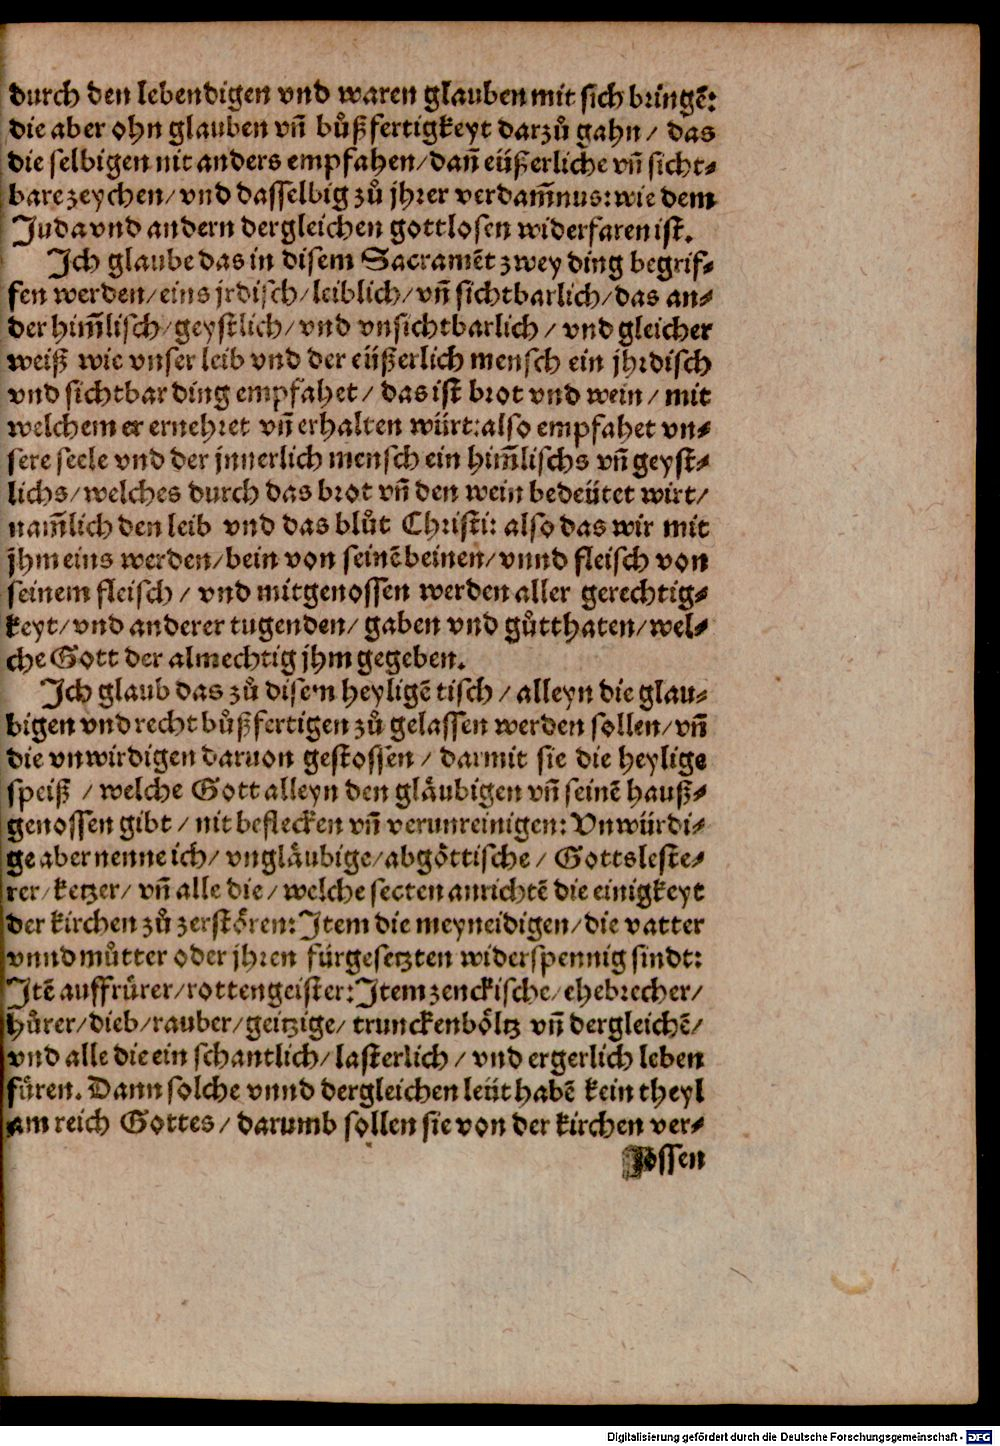 durch den lebendigen vnd waren glauben mit sich bringē:
die aber ohn glauben vñ bůßfertigkeyt darzů gahn / das
die selbigen nit anders empfahen/dañ eüßerliche vñ sicht⸗
bare zeychen/ vnd dasselbig zů jhrer verdam̃nus: wie dem
Juda vnd andern dergleichen gottlosen widerfaren ist.
Ich glaube das in disem Sacramēt zwey ding begrif⸗
fen werden/eins jrdisch/leiblich/ vñ sichtbarlich/das an⸗
der him̃lisch/geystlich/ vnd vnsichtbarlich / vnd gleicher
weiß wie vnser leib vnd der eüßerlich mensch ein jhrdisch
vnd sichtbar ding empfahet / das ist brot vnd wein / mit
welchem er ernehret vñ erhalten würt: also empfahet vn⸗
sere seele vnd der jnnerlich mensch ein him̃lischs vñ geyst⸗
lichs/welches durch das brot vñ den wein bedeütet wirt/
nam̃lich den leib vnd das blůt Christi: also das wir mit
jhm eins werden/bein von seinē beinen/ vnnd fleisch von
seinem fleisch / vnd mitgenossen werden aller gerechtig⸗
keyt/ vnd anderer tugenden/ gaben vnd gůtthaten/wel⸗
che Gott der almechtig jhm gegeben.
Ich glaub das zů disem heyligē tisch / alleyn die glau⸗
bigen vnd recht bůßfertigen zů gelassen werden sollen/ vñ
die vnwirdigen daruon gestossen / darmit sie die heylige
speiß / welche Gott alleyn den gläubigen vñ seinē hauß⸗
genossen gibt / nit beflecken vñ verunreinigen: Vnwürdi⸗
ge aber nenne ich/ vngläubige/abgöttische / Gottsleste⸗
rer/ketzer/ vñ alle die / welche secten anrichtē die einigkeyt
der kirchen zů zerstören: Item die meyneidigen/die vatter
vnnd můtter oder jhren fürgesetzten widerspennig sindt:
Itē auffrürer/rottengeister: Item zenckische/ehebrecher/
hůrer/dieb/rauber/geitzige/ trunckenböltz vñ dergleichē/
vnd alle die ein schantlich/lasterlich / vnd ergerlich leben
füren. Dann solche vnnd dergleichen leüt habē kein theyl
am reich Gottes / darumb sollen sie von der kirchen ver⸗
Digitalisierung gefördert durch die Deutsche Forschungsgemeinschaft - DFG